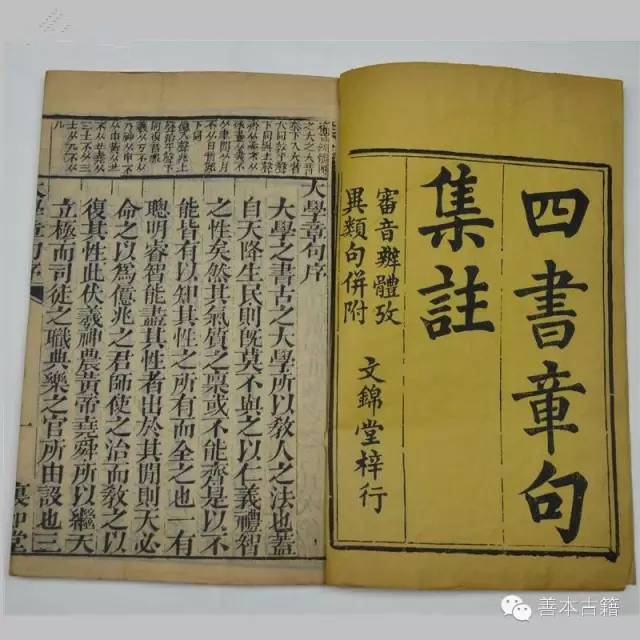 四書章句
集註
審音辨體攷
異類句併附
文錦堂梓行
大學章句序
大學之書古之大學所以敎人之法也蓋
自天降生民則旣莫不與之以仁義禮智
之性矣然其氣質之稟或不能齊是以不
能皆有以知其性之所有而全之也一有
聰明睿智能盡其性者出於其閒則天必
命之以爲億兆之君師使之治而敎之以
復其性此伏羲神農黃帝堯舜所以繼天
立極而司徒之職典樂之官所由設也三
大學章句序
一
善本古籍